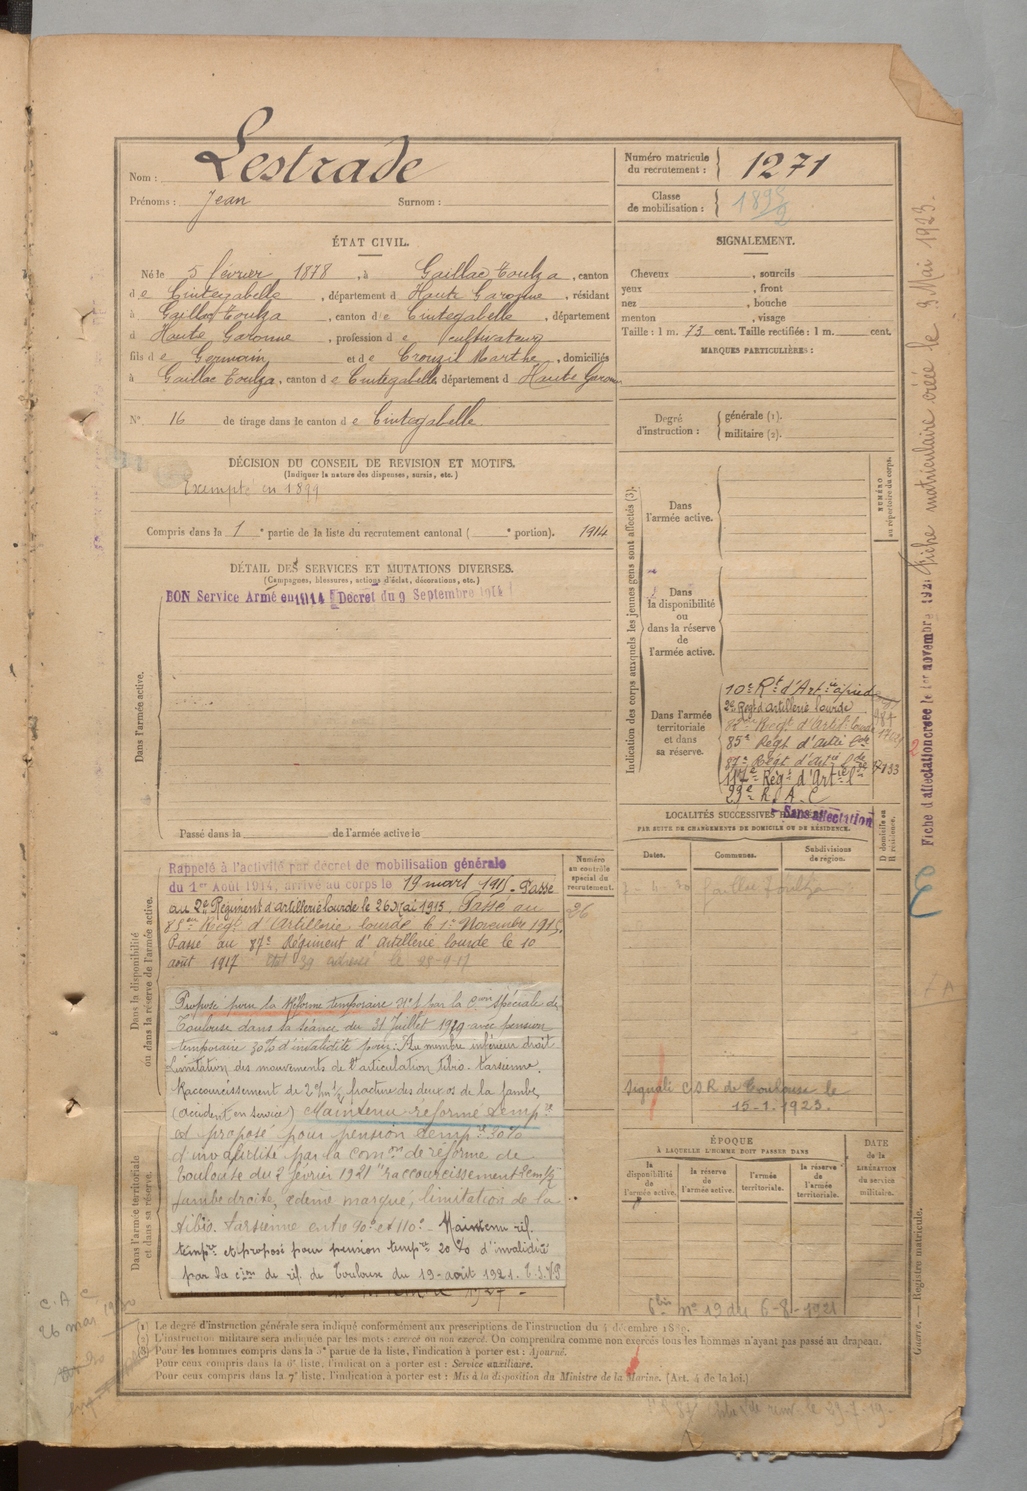 Nom : Lestrade
Prénoms : Jean Surnom :
Numéro matricule du recrutement : 1271
Classe de mobilisation :
ÉTAT CIVIL.
Né le 5 février 1878, à Gaillac Toulza, canton
de Cintegabelle, département d Haute Garonne, résidant
à Gaillac Toulza, canton de Cintegabelle, département
d Haute Garonne, profession de cultivateur
fils de Germain et de Crouzil Marthe, domiciliés
à Gaillac Toulza, canton de Cintegabelle, département d Haute Garonne
N° 16 de tirage dans le canton de Cintegabelle
SIGNALEMENT.
Cheveux , sourcils
yeux , front
nez , bouche
menton , visage
Taille : 1 m. 73 cent. Taille rectifiée : 1 m. cent.
MARQUES PARTICULIÈRES :
Degré d'instruction : générale (1).
militaire (2).
DÉCISION DU CONSEIL DE REVISION ET MOTIFS.
(Indiquer la nature des dispenses, sursis, etc.)
Exempté en 1899
Compris dans la 1e partie de la liste du recrutement cantonal ( e portion). 1914
DÉTAIL DES SERVICES ET MUTATIONS DIVERSES.
(Campagnes, blessures, actions d'éclat, décorations, etc.)
BON Service Armé en 1914 Décret du 9 Septembre 1914
Dans l'armée active.
Passé dans la de l'armée active le
Dans la disponibilité ou dans la réserve de l'armée active.
Rappelé à l'activité par décret de mobilisation générale
du 1er Août 1914, arrivé au corps le 19 mars 1915. Passé
au 2e Régiment d'artillerie lourde le 26 Mai 1915. Passé au
85em Régt d'Artillerie lourde le 1er Novembre 1915.
Passé au 87e Régiment d'artillerie lourde le 10
août 1917
Numéro au contrôle spécial du recrutement.
Proposé pour la Réforme temporaire N°1 par la Cion spéciale de
Toulouse dans sa séance du 31 Juillet 1919 avec pension
temporaire 30% d'invalidité pour : Au membre inférieur droit
Limitation des mouvements de l'articulation tibio-tarsienne.
Raccourcissement de 2cm ½ fracture des deux os de la jambe
(accident en service) Maintenu réformé tempre
et proposé pour pension tempre 30%
d'invalidité par la comon de réforme de
Toulouse du 2 février 1921 "raccourcissement 2cm ½
jambe droite, œdème marqué, limitation de la
tibio-tarsienne entre 90° et 110°. Maintenu réf.
tempre et proposé pour pension tempre 20% d'invalidité
par la cion de réf. de Toulouse du 19-août 1921. T.S.V.P
Dans l'armée territoriale et dans sa réserve.
Indication des corps auxquels les jeunes gens sont affectés (3).
NUMÉRO au répertoire du corps.
Dans l'armée active.
Dans la disponibilité ou dans la réserve de l'armée active.
Dans l'armée territoriale et dans sa réserve.
10e Rt d'Artie à pied
2e Régt d'artillerie lourde
85e Régt d'Artie lde
87e Régt d'Artie lde
117e Régt d'Artie lde
23e R.A.C
Sans affectation
LOCALITÉS SUCCESSIVES
PAR SUITE DE CHANGEMENTS DE DOMICILE OU DE RÉSIDENCE.
D domicile ou R résidence.
Dates. Communes. Subdivisions de région.
Gaillac Toulza
Signalé C.S.R de Toulouse le
15.1.1923.
ÉPOQUE
À LAQUELLE L'HOMME DOIT PASSER DANS
la disponibilité de l'armée active.
la réserve de l'armée active.
l'armée territoriale.
la réserve de l'armée territoriale.
DATE de la LIBÉRATION du service militaire.
n° 19 du 6-8-1921
(1) Le degré d'instruction générale sera indiqué conformément aux prescriptions de l'instruction du 4 décembre 1889.
(2) L'instruction militaire sera indiquée par les mots : exercé ou non exercé. On comprendra comme non exercés tous les hommes n'ayant pas passé au drapeau.
(3) Pour les hommes compris dans la 5e partie de la liste, l'indication à porter est : Ajourné.
Pour ceux compris dans la 6e liste, l'indication à porter est : Service auxiliaire.
Pour ceux compris dans la 7e liste, l'indication à porter est : Mis à la disposition du Ministre de la Marine. (Art. 4 de la loi.)
Guerre. — Registre matricule.
Fiche d'affectation créée le 1er novembre 1921 fiche matriculaire créée le 3 Mai 1923.
C.A.C
26 mai 1930